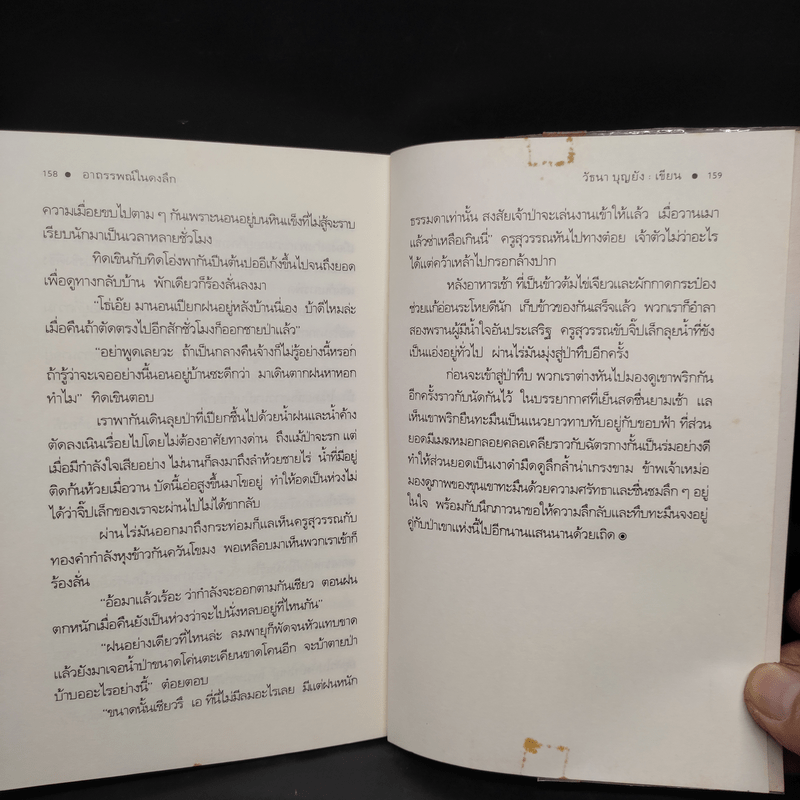 158 ● อาถรรพณ์ในดงลึก
ความเมื่อยขบไปตาม ๆ กันเพราะนอนอยู่บนหินแข็งที่ไม่สู้จะราบ
เรียบนักมาเป็นเวลาหลายชั่วโมง
ทิดเชินกับทิดโอ่งพากันปีนต้นปออีเก้งขึ้นไปจนถึงยอด
เพื่อดูทางกลับบ้าน พักเดียวก็ร้องลั่นลงมา
"โธ่เอ๊ย มานอนเปียกฝนอยู่หลังบ้านนี่เอง บ้าดีไหมล่ะ
เมื่อคืนถ้าตัดตรงไปอีกสักชั่วโมงก็ออกชายป่าแล้ว"
"อย่าพูดเลยวะ ถ้าเป็นกลางคืนจ้างก็ไม่รู้อย่างนี้หรอก
ถ้ารู้ว่าจะเจออย่างนี้นอนอยู่บ้านซะดีกว่า มาเดินตากฝนหาหอก
ทำไม" ทิดเชินตอบ
เราพากันเดินลุยป่าที่เปียกชื้นไปด้วยน้ำฝนและน้ำค้าง
ตัดลงเนินเรื่อยไปโดยไม่ต้องอาศัยทางด่าน ถึงแม้ป่าจะรก แต่
เมื่อมีกำลังใจเสียอย่าง ไม่นานก็ลงมาถึงลำห้วยชายไร่ น้ำที่มีอยู่
ติดก้นห้วยเมื่อวาน บัดนี้เอ่อสูงขึ้นมาโขอยู่ ทำให้อดเป็นห่วงไม่
ได้ว่าจี๊ปเล็กของเราจะผ่านไปไม่ได้ขากลับ
ผ่านไร่มันออกมาถึงกระท่อมก็แลเห็นครูสุวรรณกับ
ทองคำกำลังหุงข้าวกันควันโขมง พอเหลือบมาเห็นพวกเราเข้าก็
ร้องลั่น
"อ้อมาแล้วเร้อะ ว่ากำลังจะออกตามกันเชียว ตอนฝน
ตกหนักเมื่อคืนยังเป็นห่วงว่าจะไปนั่งหลบอยู่ที่ไหนกัน"
"ฝนอย่างเดียวที่ไหนล่ะ ลมพายุก็พัดจนหัวแทบขาด
แล้วยังมาเจอน้ำป่าขนาดโค่นตะเคียนขาดโคนอีก จะบ้าตายป่า
บ้าบออะไรอย่างนี้" ต๋อยตอบ
"ขนาดนั้นเชียวรึ เอ ที่นี่ไม่มีลมอะไรเลย มีแต่ฝนหนัก
วัธนา บุญยัง : เขียน ● 159
ธรรมดาเท่านั้น สงสัยเจ้าป่าจะเล่นงานเข้าให้แล้ว เมื่อวานเมา
แล้วซ่าเหลือเกินนี่" ครูสุวรรณหันไปทางต๋อย เจ้าตัวไม่ว่าอะไร
ได้แต่คว้าเหล้าไปกรอกล้างปาก
หลังอาหารเช้า ที่เป็นข้าวต้มไข่เจียวและผักกาดกระป๋อง
ช่วยแก้อ่อนระโหยดีนัก เก็บข้าวของกันเสร็จแล้ว พวกเราก็อำลา
สองพรานผู้มีน้ำใจอันประเสริฐ ครูสุวรรณขับจี๊ปเล็กลุยน้ำที่ขัง
เป็นแอ่งอยู่ทั่วไป ผ่านไร่มันมุ่งสู่ป่าทึบอีกครั้ง
ก่อนจะเข้าสู่ป่าทึบ พวกเราต่างหันไปมองดูเขาพริกกัน
อีกครั้งราวกับนัดกันไว้ ในบรรยากาศที่เย็นสดชื่นยามเช้า แล
เห็นเขาพริกยืนทะมึนเป็นแนวยาวทาบทับอยู่กับขอบฟ้า ที่ส่วน
ยอดมีเมฆหมอกลอยคลอเคลียราวกับฉัตรกางกั้นเป็นร่มอย่างดี
ทำให้ส่วนยอดเป็นเงาดำมืดดูลึกล้ำน่าเกรงขาม ข้าพเจ้าเหม่อ
มองดูภาพของขุนเขาทะมึนด้วยความศรัทธาและชื่นชมลึก ๆ อยู่
ในใจ พร้อมกับนึกภาวนาขอให้ความลึกลับและทึบทะมึนจงอยู่
คู่กับป่าเขาแห่งนี้ไปอีกนานแสนนานด้วยเถิด ◉